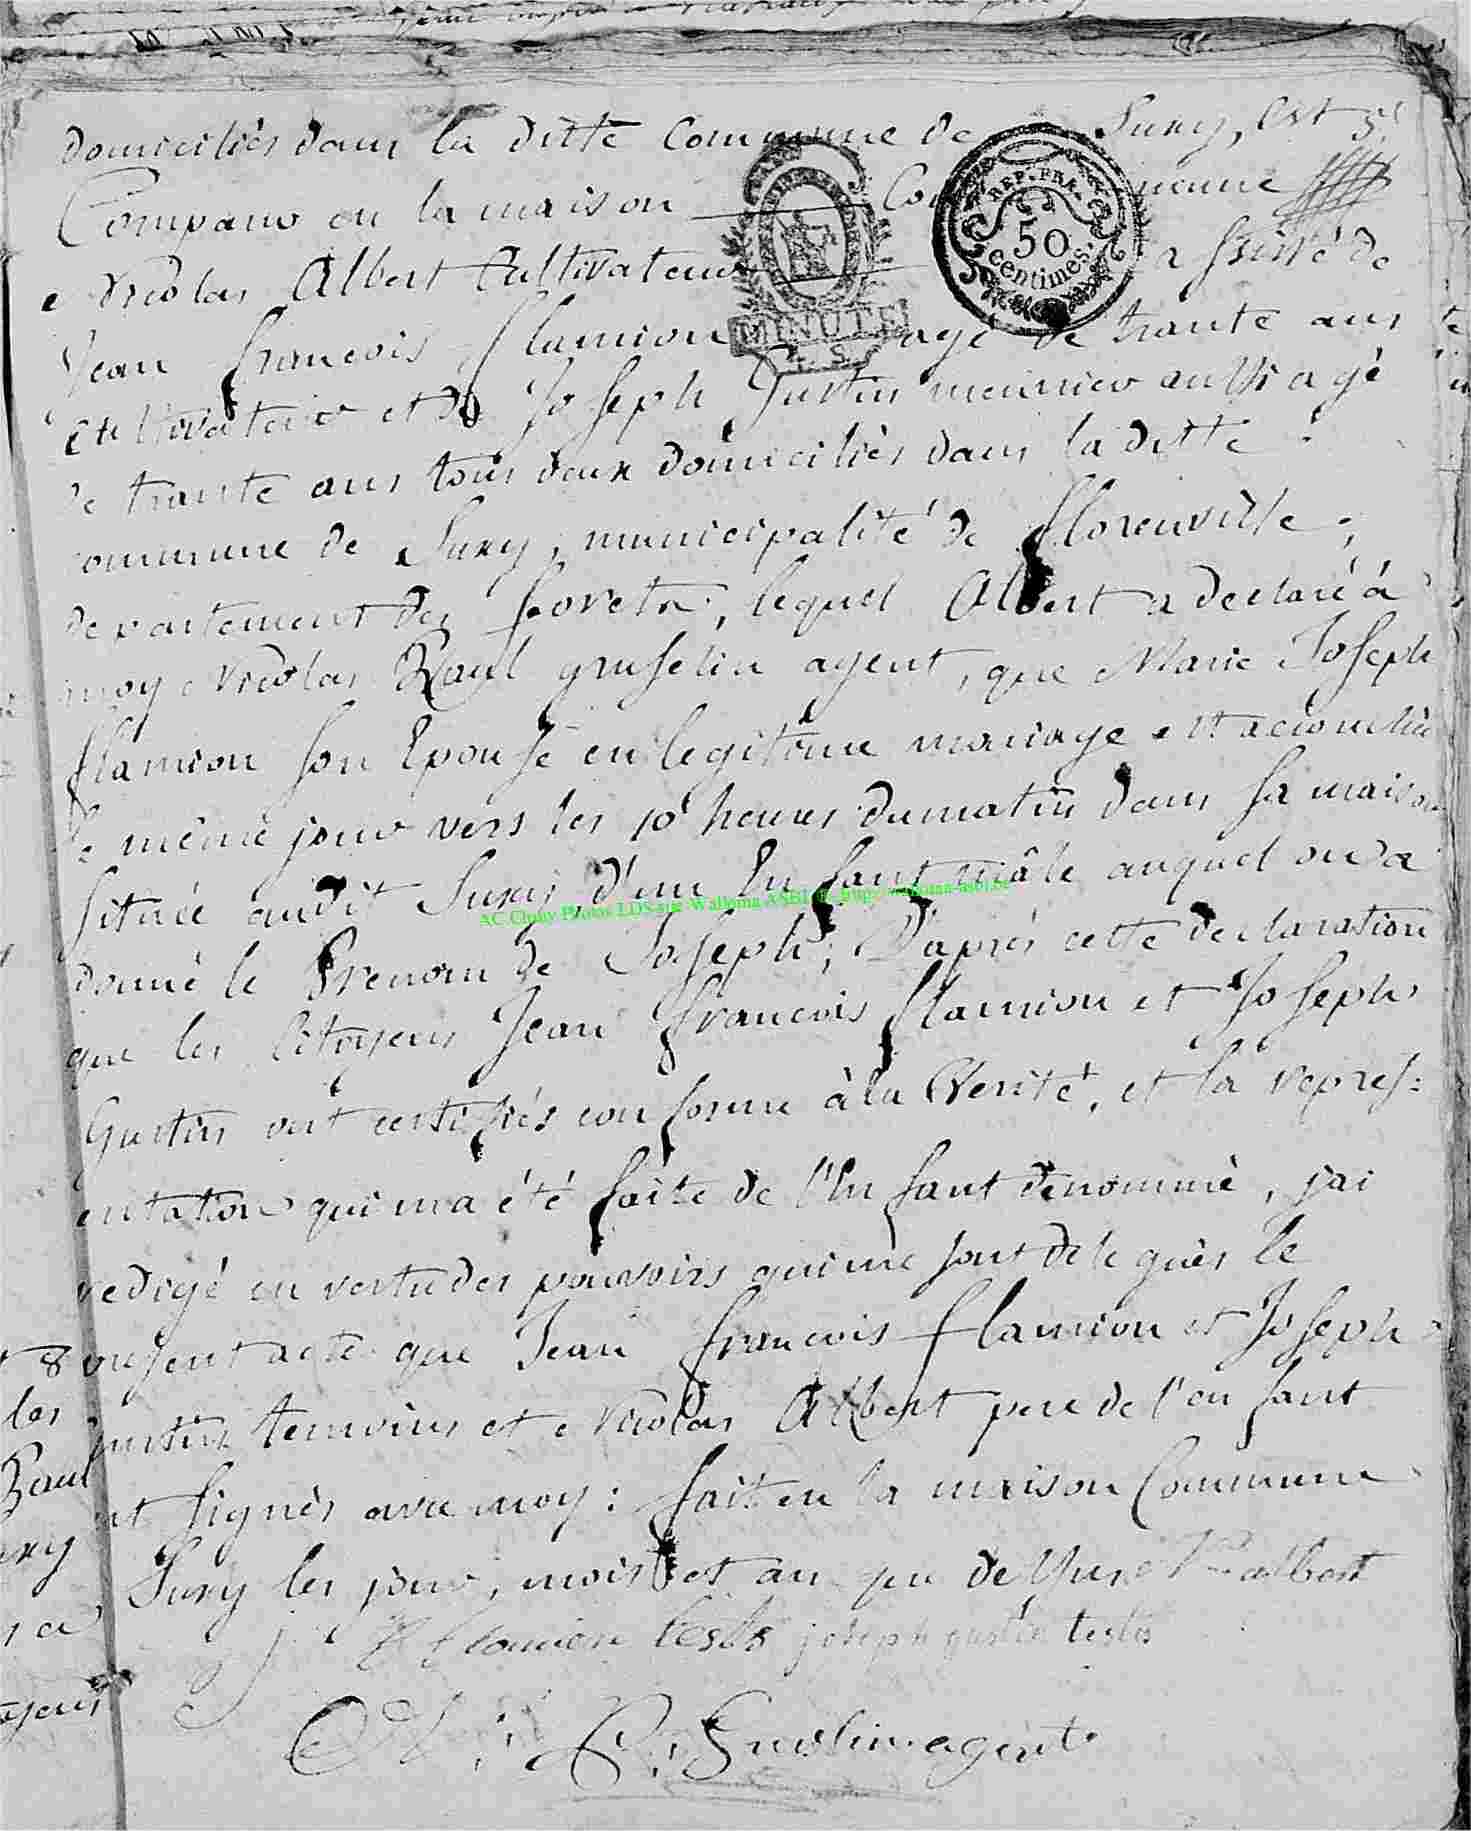 domiciliés dans la ditte Commune de Suxy, est
Comparu en la maison Commune
Nicolas Albert Cultivateur assisté de
REP. FRA.
50
centimes
MINUTE
Jean françois flamion agé de trante ans
Cultivateur et de Joseph Gustin meunier aussi agé
de trante ans tous deux domiciliés dans la ditte
commune de Suxy, municipalité de florenville,
departement des forets, lequel Albert a declaré á
moy Nicolas Raul gruselin agent, que Marie Joseph
flamion son Epouse en legitime mariage est acouchée
le même jour vers les 10 heures du matin dans sa maison
située au dit Suxy, d'un Enfant mâle auquel on a
donné le Prenom de Joseph; D'aprés cette declaration
que les Citoyens Jean françois flamion et Joseph
Gustin ont certifiés conforme à la Verité, et la repres=
entation qui m'a été faite de l'Enfant denommé, j'ai
redigé en vertu des pouvoirs qui me sont delegués le
present acte que Jean françois flamion et Joseph
gustin temoins et Nicolas Albert pere de l'enfant
ont signés avec moy: fait en la maison Commune
Suxy les jour, mois et an que dessus N albert
J f flamion testis joseph gustin testis
N: R: Gruslin agent
les
Raul